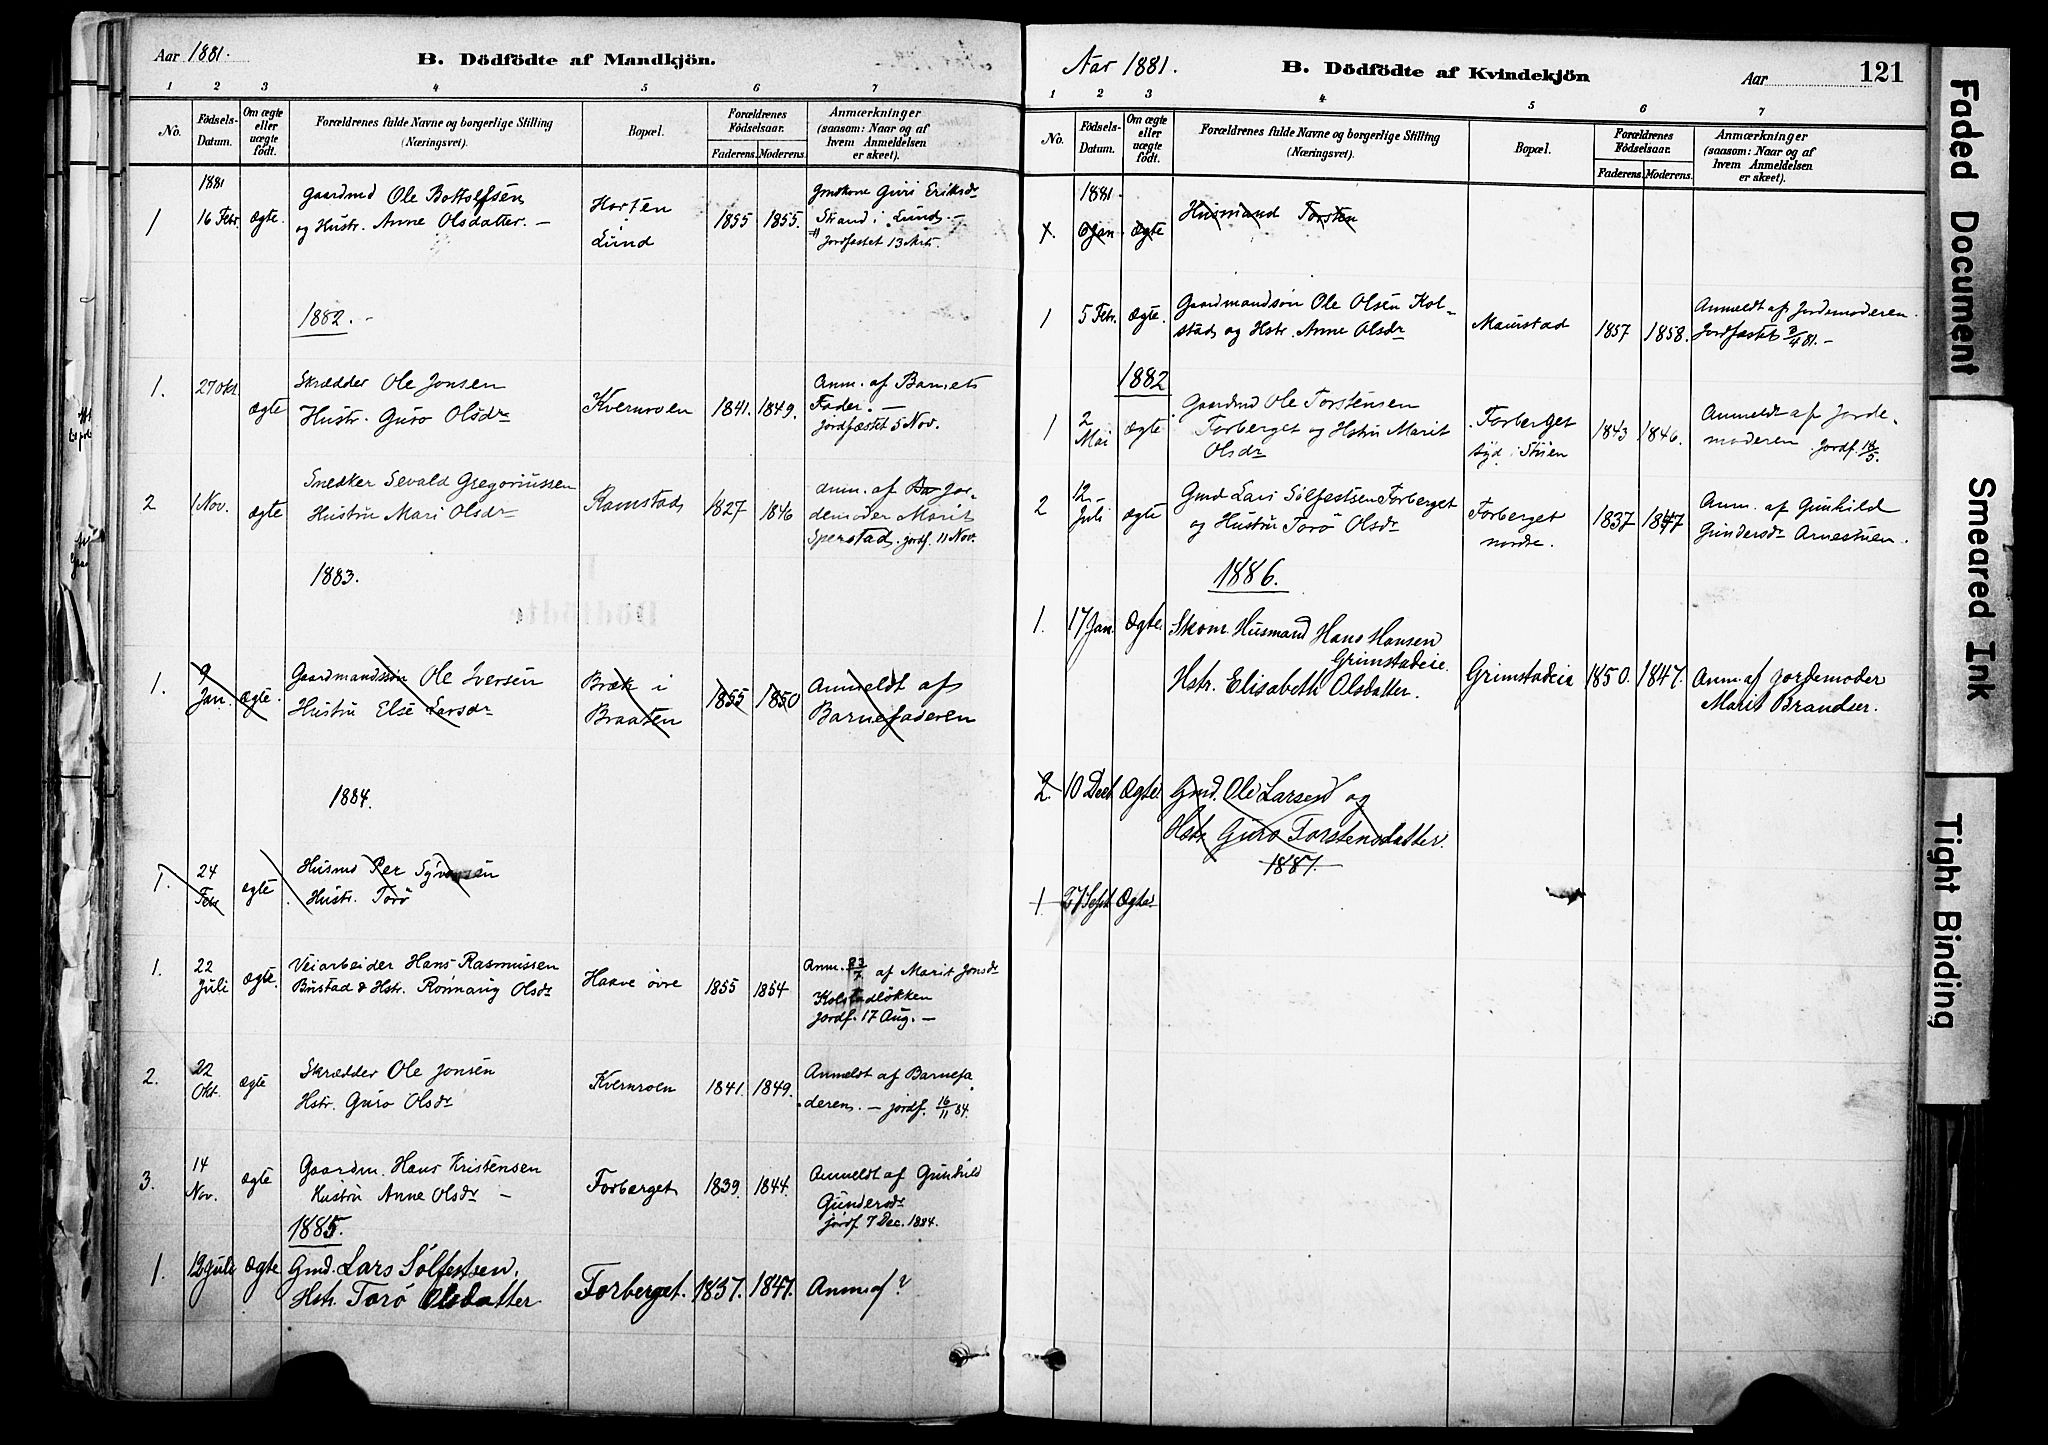 Aar 1881.
B. Dödfödte af Mandkjön.
1 2 3 4 5 6 7
No.
Födsels-Datum.
Om ægte eller uægte födt.
Forældrenes fulde Navne og borgerlige Stilling (Næringsvei).
Bopæl.
Forældrenes Födselsaar.
Faderens. Moderens.
Anmærkninger (saasom: Naar og af hvem Anmeldelsen er skeet).
1881
1 16 Febr. ægte. Gaardmd Ole Bottolfsen Horten 1855 1855. Guri Eriksdr
og Hustr. Anne Olsdatter. – Lund Strand i Lund. –
Jordfæstet 13 Mrts
1882. –
1. 27 Okt. ægte Skrædder Ole Jonsen Kvernroen 1841. 1849. Anm. af Barnets
Hustr. Guro Olsdr Fader. –
Jordfæstet 5 Nov.
2 1 Nov. ægte Snedker Sevald Gregoriussen Ramstad 1827 1846 Anm. af Jor-
Hustru Mari Olsdr demoder Marit
Sperstad. jordf. 11 Nov.
1883.
1. 9 Jan. ægte. Gaardmandssön Ole Iversen Bræk i 1855 1850 Anmeldt af
Hustru Else Larsdr Braaten Barnefaderen
1884.
1. 24 Febr ægte Husmd Per
Hustr. Torö
1. 22 Juli ægte. Veiarbeider Hans Rasmussen Haave övre 1855 1854 Anm. 23/7 af Marit Jonsdr
Bustad & Hstr. Rönnaug Olsdr Kolstadlökken
Jordf. 17 Aug. –
2. 22 Okt. ægte Skrædder Ole Jonsen Kvernroen 1841. 1849. Anmeldt af Barnefa
Hstr. Guro Olsdr deren. – jordf. 16/11 84.
3. 14 Nov. ægte Gaardm. Hans Kristensen Forberget 1839. 1844. Anmeldt af Gunhild
Hustru Anne Olsdr – Gundersdr
jordf. 7 Dec. 1884.
1885.
1. 12 Juli Ægte Gmd. Lars Sölfestsen. Forberget. 1837. 1847. Anm af ?
Hstr. Torö Olsdatter
Aar 1881.
B. Dödfödte af Kvindekjön
Aar
121
1 2 3 4 5 6 7
No.
Födsels-Datum.
Om ægte eller uægte födt.
Forældrenes fulde Navne og borgerlige Stilling (Næringsvei).
Bopæl.
Forældrenes Födselsaar.
Faderens. Moderens.
Anmærkninger (saasom: Naar og af hvem Anmeldelsen er skeet).
1881.
1. 6 Jan ægte Husmand Torsten
1 5 Febr. ægte. Gaardmandsön Ole Olsen Kol- Maurstad 1857 1858. Anmeldt af Jordemoderen.
stad og Hstr. Anne Olsdr Jordfæstet 3/4 81. –
1882
1 2 Mai ægte Gaardmd Ole Torstensen Forberget 1843 1846. Anmeldt af Jorde-
Forberget og Hstru Marit syd i moderen Jordf.
Olsdr
2 12 Juli ægte Gmd Lars Sölfestsen Forberget Forberget 1837 1847 Anm. af Gunhild
og Hustru Torö Olsdr nordre. Gundersdr Arnestuen.
1886.
1. 17 Jan. Ægte. Skom. Husmand Hans Hansen
Grimstadeie.
Hstr. Elisabeth Olsdatter. Grimstadeie 1850. 1847. Anm. af Jordemoder
Marit Brandser.
2. 10 Decb Ægte. Gmd. Ole Larsen og
Hstr Guro Torstensdatter.
1887.
1. 27 Sept Ægte
Faded Document
Smeared Ink
Tight Binding